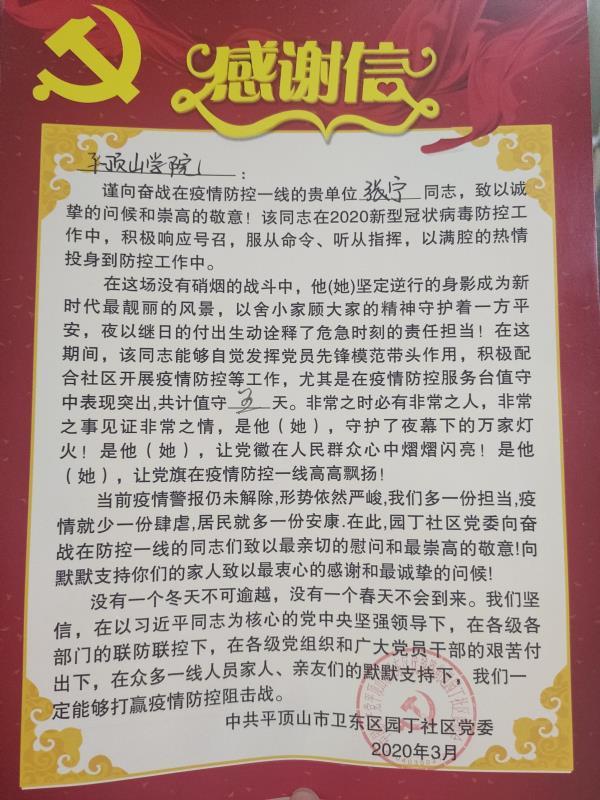 感谢信
平顶山学院：
谨向奋战在疫情防控一线的贵单位张宁同志，致以诚
挚的问候和崇高的敬意！该同志在2020新型冠状病毒防控工
作中，积极响应号召，服从命令、听从指挥，以满腔的热情
投身到防控工作中。
在这场没有硝烟的战斗中，他(她)坚定逆行的身影成为新
时代最靓丽的风景，以舍小家顾大家的精神守护着一方平
安，夜以继日的付出生动诠释了危急时刻的责任担当！在这
期间，该同志能够自觉发挥党员先锋模范带头作用，积极配
合社区开展疫情防控等工作，尤其是在疫情防控服务台值守
中表现突出,共计值守五天。非常之时必有非常之人，非常
之事见证非常之情，是他（她），守护了夜幕下的万家灯
火！是他（她），让党徽在人民群众心中熠熠闪亮！是他
（她），让党旗在疫情防控一线高高飘扬！
当前疫情警报仍未解除,形势依然严峻,我们多一份担当,疫
情就少一份肆虐,居民就多一份安康.在此,园丁社区党委向奋
战在防控一线的同志们致以最亲切的慰问和最崇高的敬意!向
默默支持你们的家人致以最衷心的感谢和最诚挚的问候!
没有一个冬天不可逾越，没有一个春天不会到来。我们坚
信，在以习近平同志为核心的党中央坚强领导下，在各级各
部门的联防联控下，在各级党组织和广大党员干部的艰苦付
出下，在众多一线人员家人、亲友们的默默支持下，我们一
定能够打赢疫情防控阻击战。
中共平顶山市卫东区园丁社区党委
2020年3月